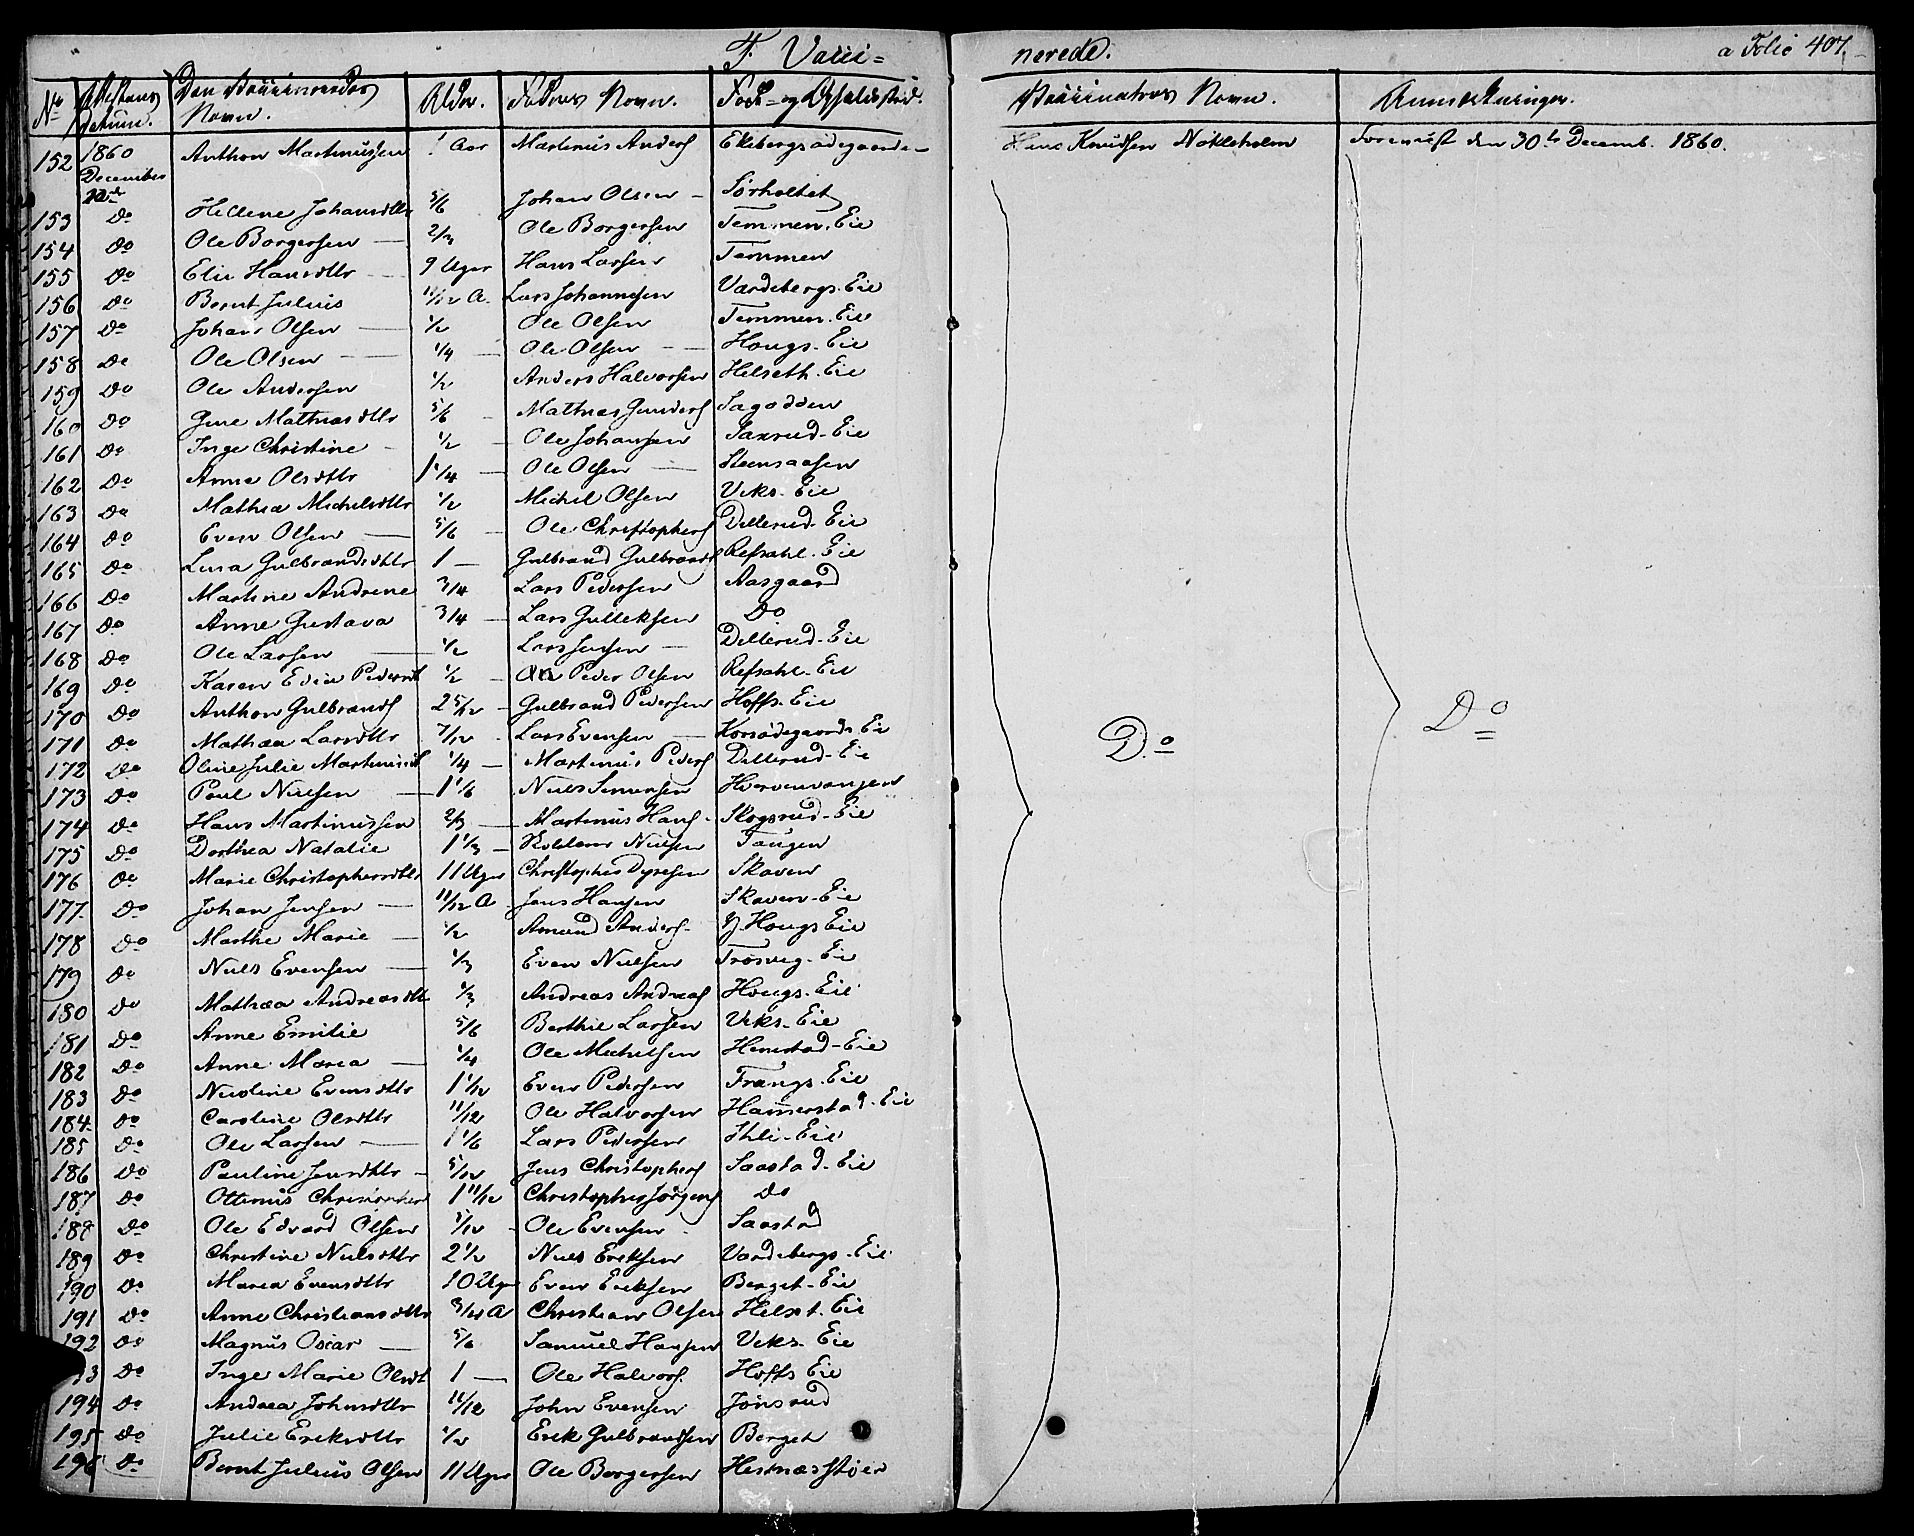 F. Vacci=
nerede.
a Folio 407.
No Attestens datum. Den Vaccineredes Navn. Alder. Fadrens Navn. Føde- og Opholdssted. Vaccinators Navn. Anmærkninger.
152 1860 December 22de Anthon Martinussen 1 Aar Martinus Anders Ekebergsødegaarden Hans Knudsen Nøkleholm Forevist den 30te Decemb. 1860.
153 Do Hellene Johansdtr 5/6 Johan Olsen - Sørholtet
154 Do Ole Borgersen 2/3 Ole Borgersen Temmen. Eie
155 Do Elie Hansdtr 9 Uger Hans Larsen Temmen
156 Do Bernt Julius 11/12 A. Lars Johannesen Vardebergs. Eie
157 Do Johan Olsen 1/2 Ole Olsen Temmen. Eie
158 Do Ole Olsen 1/4 Ole Olsen Hougs. Eie
159 Do Ole Andersen 1/2 Anders Halvorsen Helseth. Eie
160 Do Gine Mathiasdtr 5/6 Mathias Gunders Sagodden
161 Do Inge Christine 1/2 Ole Johansen Saxrud. Eie
162 Do Anne Olsdtr 1 1/4 Ole Olsen Steensaasen
163 Do Mathea Michelsdtr 1/2 Michel Olsen Veks. Eie
164 Do Even Olsen 5/6 Ole Christophers Dellerud. Eie
165 Do Lina Gulbrandsdtr 1 Gulbrand Gulbrands Refsahl. Eie
166 Do Martine Andrine 3/4 Lars Pedersen Aasgaard
167 Do Anne Gustava 3/4 Lars Gulleksen Do
168 Do Ole Larsen 1/2 Lars Jensen Dellerud. Eie
169 Do Karen Evia Pedersdt 1/2 Peder Olsen Refsahl. Eie
170 Do Anthon Gulbrands 2 5/12 Gulbrand Pedersen Hoffs. Eie
171 Do Mathea Larsdtr 7/12 Lars Evensen Korsødegaards Eie
172 Do Oline Julie Martinusdt 1/4 Martinus Peders Dellerud. Eie
173 Do Poul Nielsen 1 1/6 Niels Simensen Hvervenvangen
174 Do Hans Martinussen 2/3 Martinus Hans Skogsrud. Eie
175 Do Dorthea Natalie 1 1/3 Nielsen Tangen
176 Do Marie Christophersdtr 11 Uger Christopher Dyresen Skaven
177. Do Johan Jensen 11/12 A Jens Hansen Skaven. Eie
178 Do Marthe Marie 1/2 Amund Anders. Y. Hougs Eie
179 Do Niels Evensen 1/3 Even Nielsen Frøsvig. Eie
180 Do Mathea Andreasdtr 1/3 Andreas Andreas Hougs. Eie
181 Do Anne Emilie 5/6 Berthie Larsen Veks. Eie
182 Do Anne Marea 1/4 Ole Michelsen Hemstad. Eie
183 Do Nicoline Evensdtr 1 1/12 Even Pedersen Frangs. Eie
184. Do Caroline Olsdtr 11/12 Ole Halvorsen Hamerstad. Eie
185 Do Ole Larsen 1 1/6 Lars Pedersen Ihli. Eie
186 Do Pauline Jensdtr 5/12 Jens Christophers Saastad. Eie
187 Do Ottinus Christophers 1 11/12 Christopher Jørgens Do
188 Do Ole Edvard Olsen 5/12 Ole Evensen Saastad
189 Do Christine Nielsdtr 2 1/2 Niels Eriksen Vardebergs. Eie
190 Do Marea Evensdtr 10 Uger Even Eriksen Berget. Eie
191 Do Anne Christiansdtr 3/4 A Christian Olsen Helset. Eie
192 Do Magnus Oscar 5/6 Samuel Hansen Veks. Eie
3 Do Inge Marie Olsdt 1 Ole Halvors. Hoffs Eie
194 Do Andrea Johnsdtr 11/12 John Evensen Jønsrud
195 Do Julie Eriksdtr 1/2 Erik Gulbrandsen Berget
196 Do Bernt Julius Olsen 11 Uger Ole Borgersen Hesnæsstøen
Do
Do